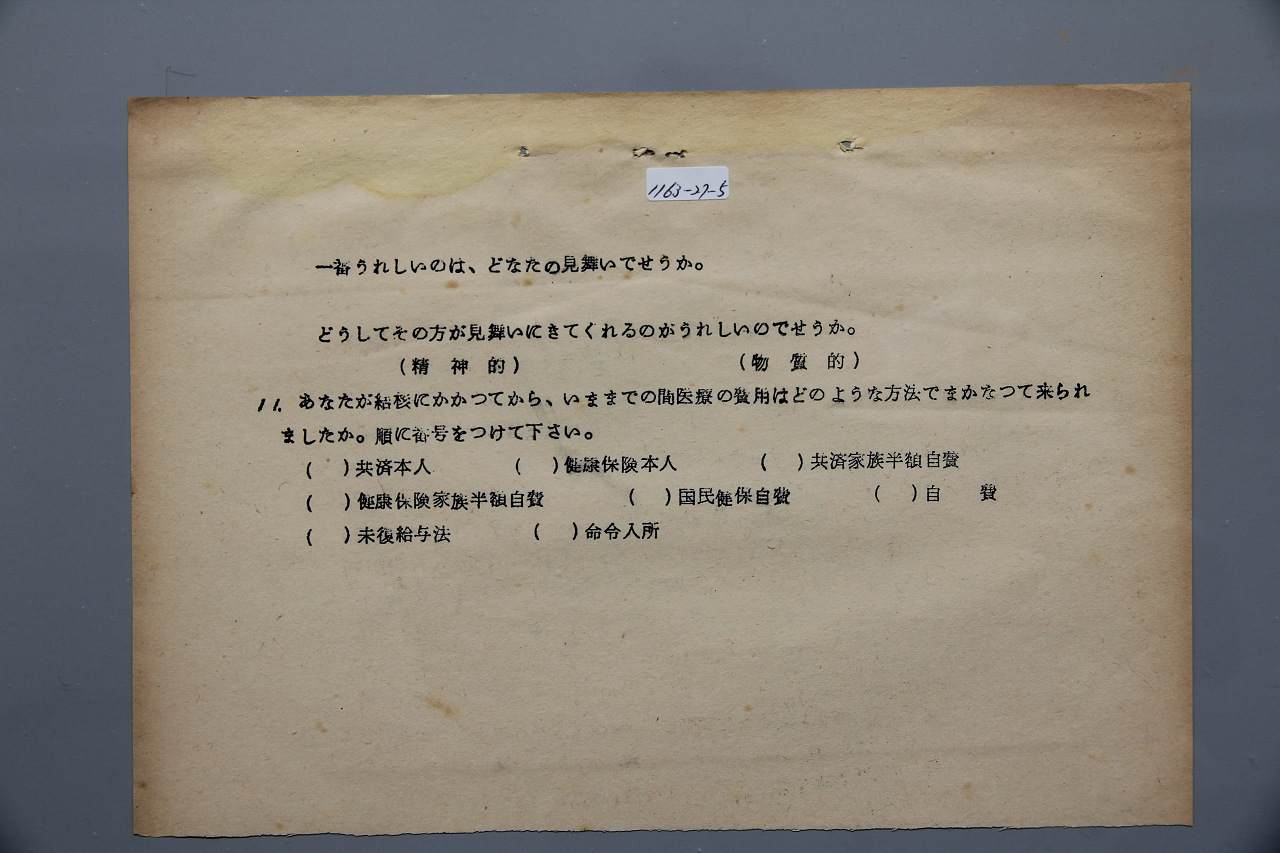 1163-27-5
一番うれしいのは、どなたの見舞いでせうか。
どうしてその方が見舞いにきてくれるのがうれしいのでせうか。
(精　神　的)　　　　　　　　　　　　(物　質　的)
11. あなたが結核にかかつてから、いままでの間医療の費用はどのような方法でまかなつて来られ
ましたか。順に番号をつけて下さい。
(　　)共済本人　　　　(　　)健康保険本人　　　　(　　)共済家族半額自費
(　　)健康保険家族半額自費　　　　(　　)国民健保自費　　　　(　　)自　　費
(　　)未復給与法　　　　(　　)命令入所